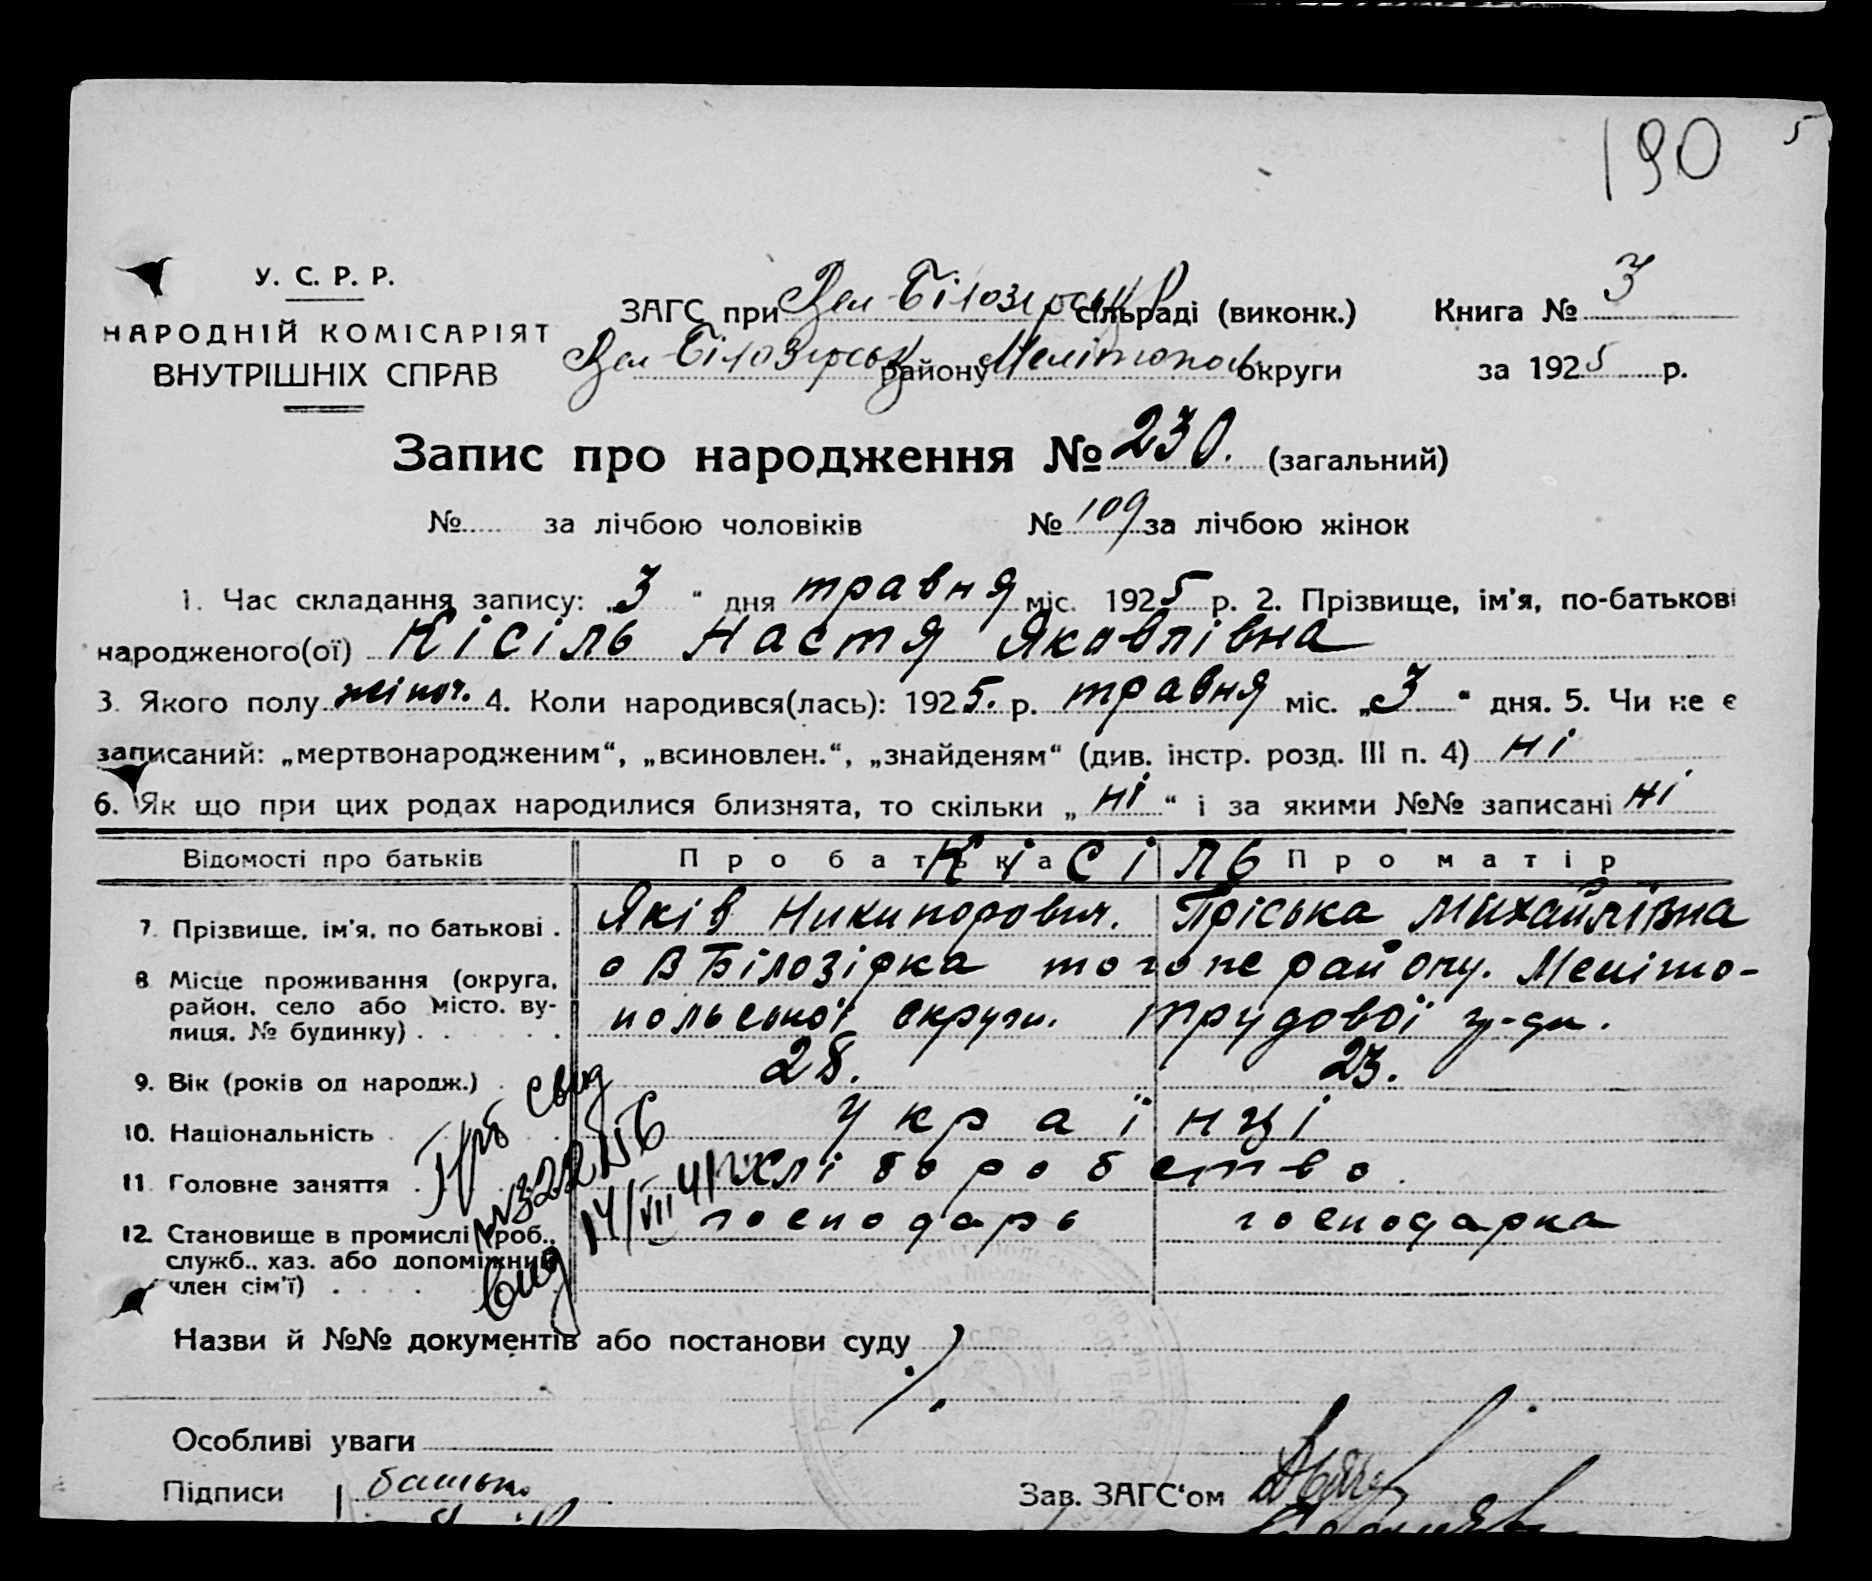 190 5
У. С. Р. Р.
НАРОДНІЙ КОМІСАРІЯТ
ВНУТРІШНІХ СПРАВ
ЗАГС при Вел-Білозірськ сільраді (виконк.) Книга № 3
Вел-Білозірськ району Мелітопол округи за 1925 р.
Запис про народження № 230. (загальний)
№ за лічбою чоловіків № 109 за лічбою жінок
1. Час складання запису: „3“ дня травня міс. 1925 р. 2. Прізвище, ім'я, по-батькові
народженого(ої) Кісіль Настя Яковлівна
3. Якого полу жіноч. 4. Коли народився(лась): 1925. р. травня міс. „3“ дня. 5. Чи не є
записаний: „мертвонародженим“, „всиновлен.“, „знайденям“ (див. інстр. розд. III п. 4) ні
6. Як що при цих родах народилися близнята, то скільки „ні“ і за якими №№ записані ні
Відомості про батьків Про батька Кісіль Про матір
7. Прізвище, ім'я, по батькові . Яків Никипорович. Пріська Михайлівна
8 Місце проживання (округа, район, село або місто, вулиця, № будинку) . . . . . . В Білозірка того пе району. Меліто-
польської округи. трудової
9. Вік (років од народж.) . 28. 23.
10. Національність українці
11. Головне заняття . хліборобство.
12. Становище в промислі (роб., господарь господарка
служб., хаз. або допоміжний
член сім'ї) . . . .
№322
14/VII 41
Назви й №№ документів або постанови суду
Особливі уваги
Підписи батько Зав. ЗАГС'ом